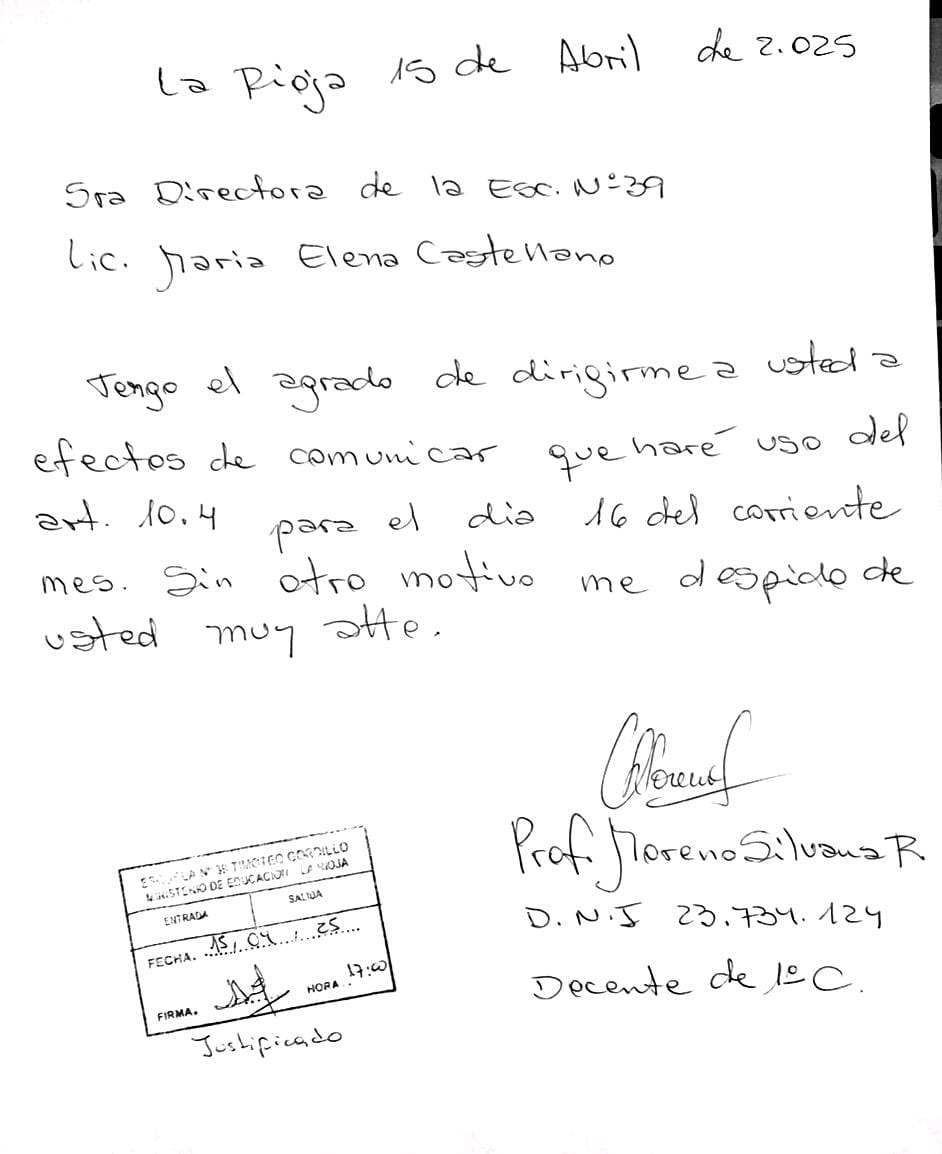 La Rioja 15 de Abril de 2.025
Sra Directora de la Esc. Nº 39
Lic. Maria Elena Castellano
Tengo el agrado de dirigirme a usted a
efectos de comunicar que haré uso del
art. 10.4 para el dia 16 del corriente
mes. Sin otro motivo me despido de
usted muy atte.
Prof. Moreno Silvana R.
D.N.I 23.734.124
Docente de 1º C.
ESCUELA Nº 39 TIMOTEO GORDILLO
MINISTERIO DE EDUCACION LA RIOJA
ENTRADA SALIDA
FECHA. 15, 04, 25
FIRMA. HORA 17:00
Justificado